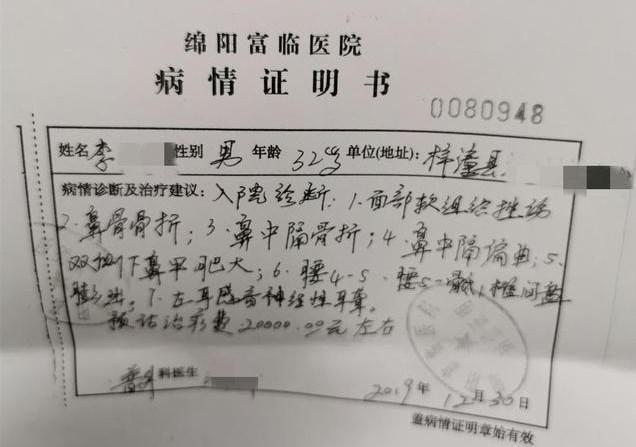 绵阳富临医院
病情证明书
0080948
姓名 李 性别 男 年龄 32岁 单位(地址): 梓潼县
病情诊断及治疗建议: 入院诊断: 1.面部软组织挫伤
2.鼻骨骨折; 3.鼻中隔骨折; 4.鼻中隔偏曲; 5.
双侧下鼻甲肥大; 6.腰4-5、腰5-骶1椎间盘
膨出。7.左耳感音神经性耳聋。
预估治疗费20000.00元左右
科医生
2019年12月30日
盖病情证明章始有效